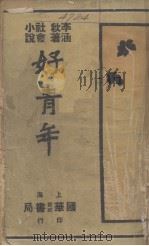 李涵
秋著
社會
小說
好青年
上海
國華書局
印行